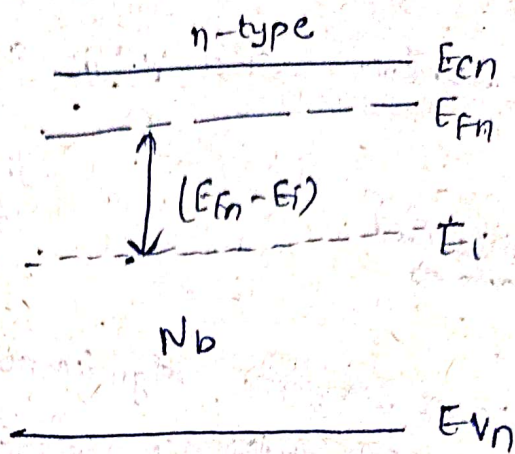 n-type
Ecn
EFn
(EFn-Ei)
Ei
Nb
Evn